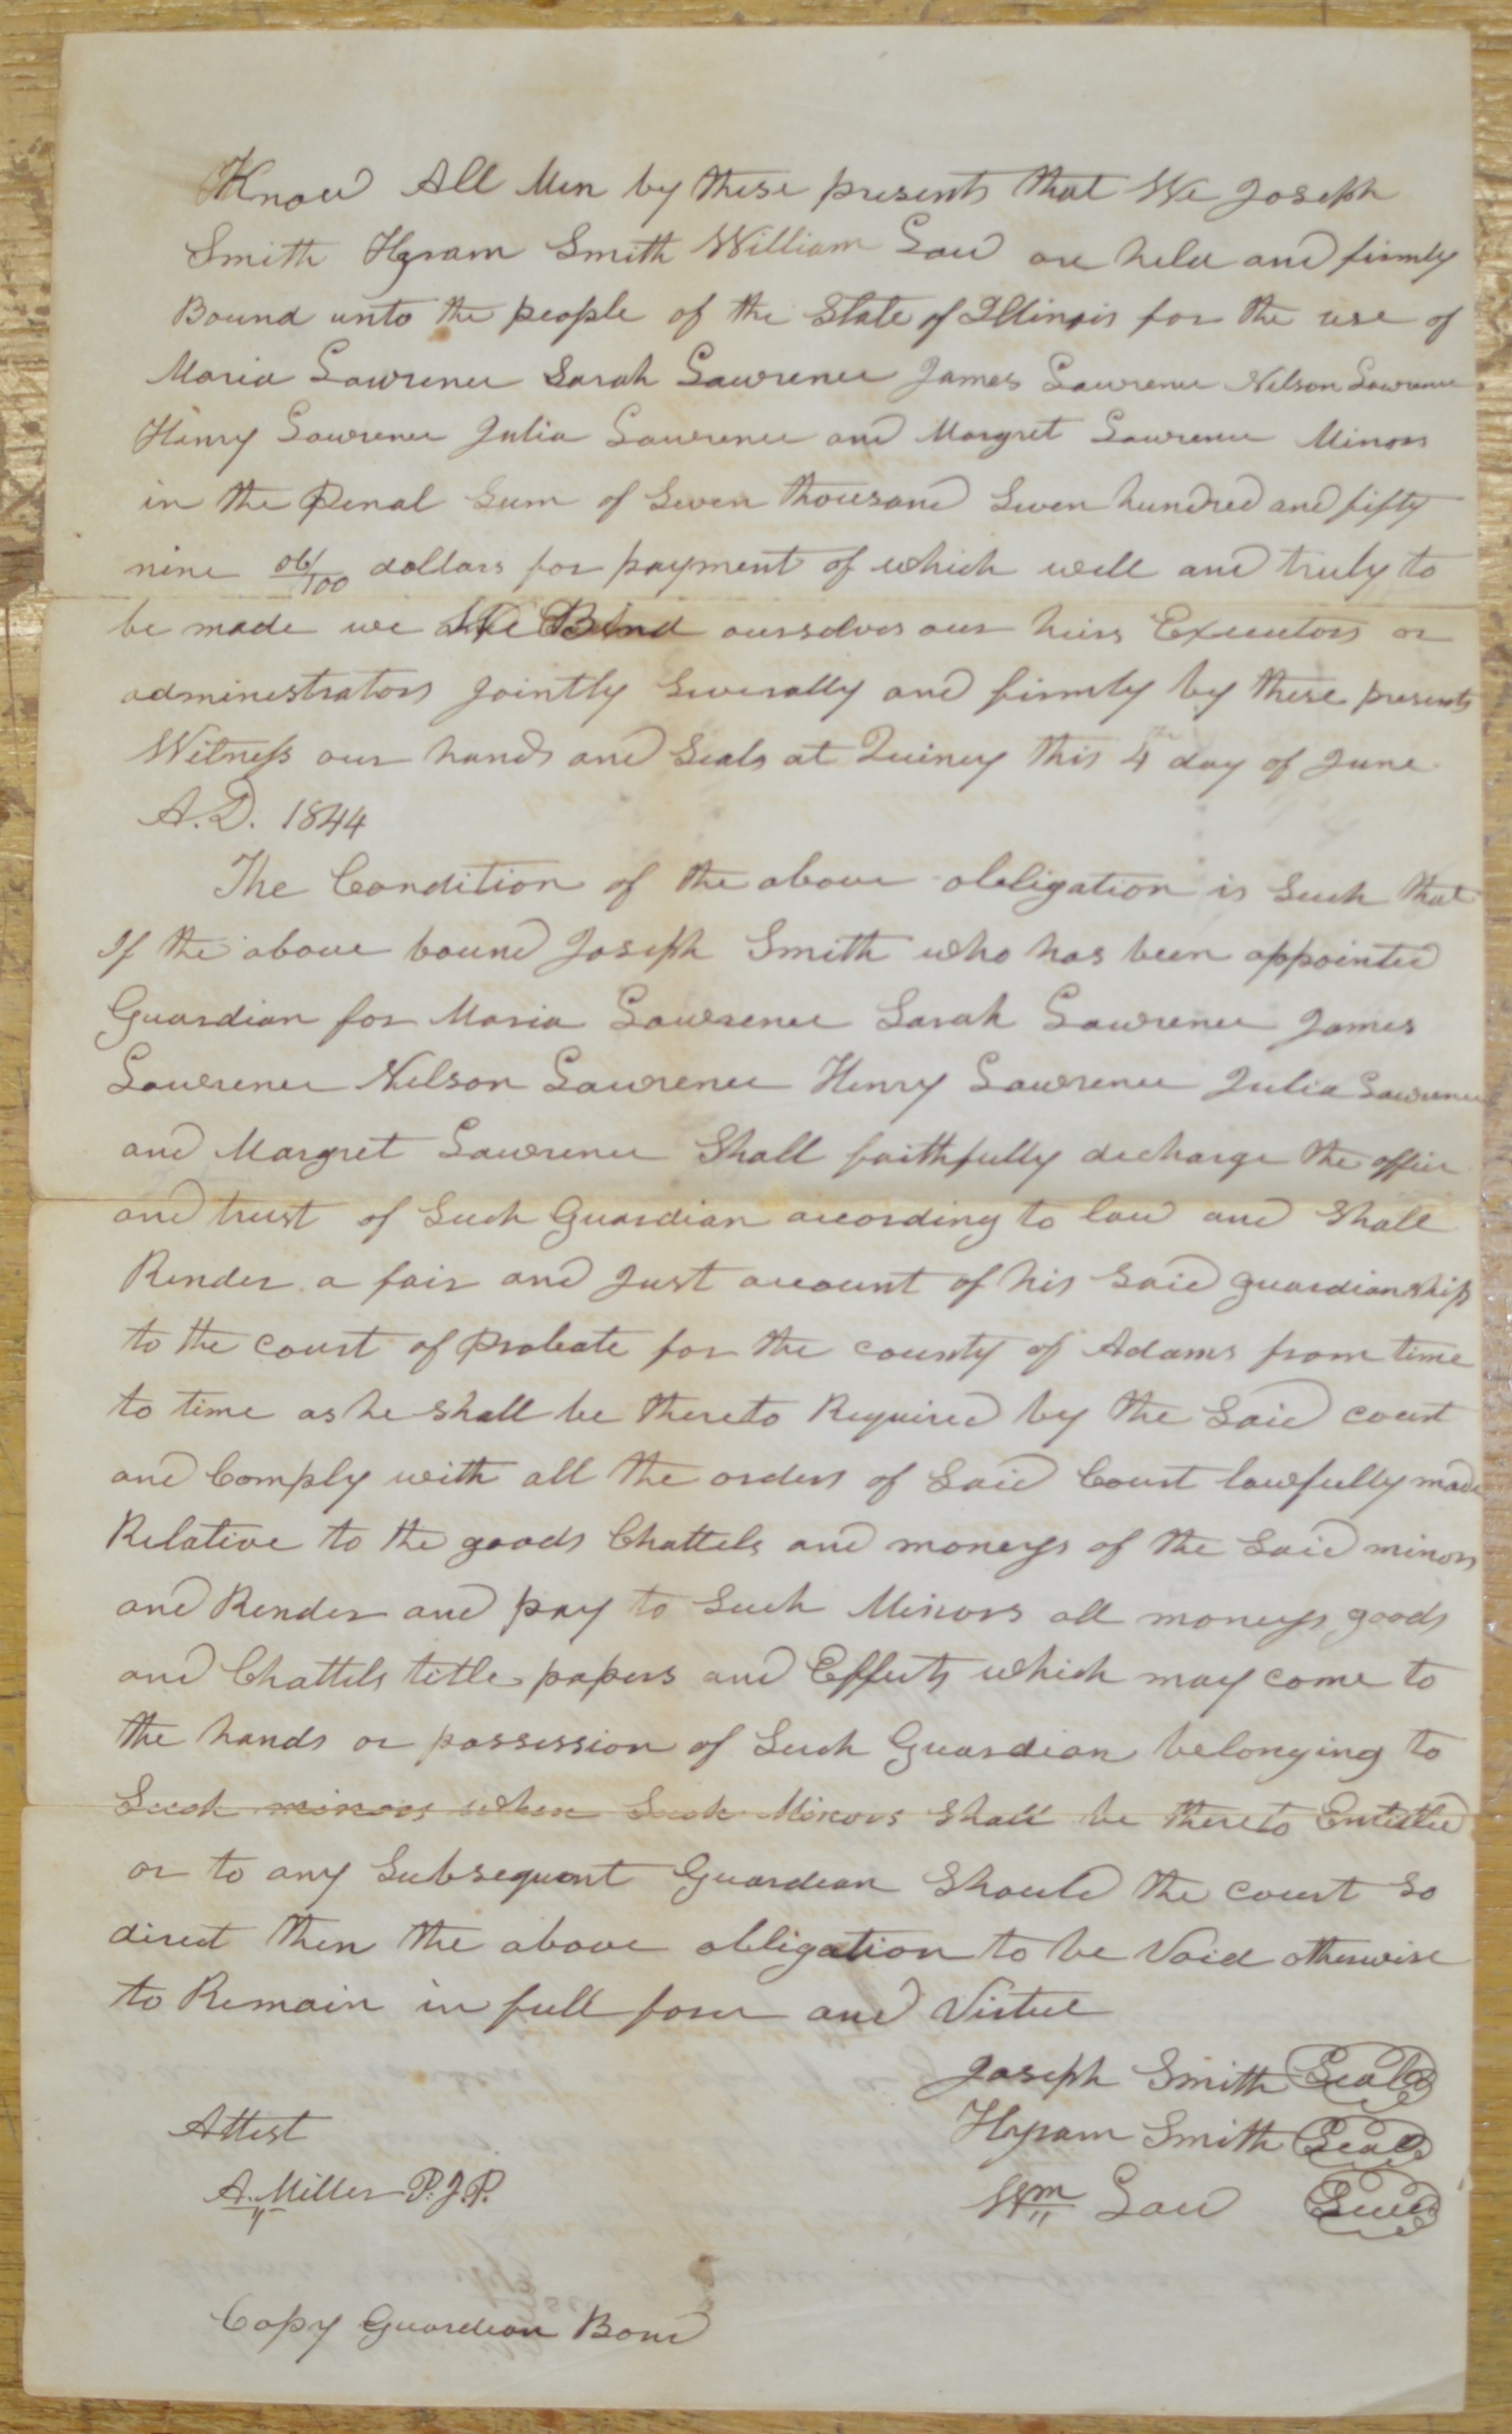 Know All Men by these presents that We Joseph
Smith Hyram Smith William Law are held and firmly
Bound unto the people of the State of Illinois for the use of
Maria Lawrence Sarah Lawrence James Lawrence Nelson Lawrence
Henry Lawrence Julia Lawrence and Margret Lawrence Minors
in the Penal Sum of Seven thousand Seven hundred and fifty
nine 06/100 dollars for payment of which well and truly to
be made we Bind ourselves our heirs Executors or
administrators Jointly Severally and firmly by these presents
Witness our hands and Seals at Quincy this 4th day of June
A.D. 1844
The Condition of the above obligation is Such that
If the above bound Joseph Smith who has been appointed
Guardian for Maria Lawrence Sarah Lawrence James
Lawrence Nelson Lawrence Henry Lawrence Julia Lawrence
and Margret Lawrence Shall faithfully decharge the office
and trust of Such Guardian according to law and Shall
Render a fair and Just account of his Said guardianship
to the court of Probate for the county of Adams from time
to time as he shall be thereto Required by the Said court
and Comply with all the orders of Said Court lawfully made
Relative to the goods Chattels and moneys of the Said minors
and Render and pay to Such Minors all moneys goods
and Chattels title papers and Effects which may come to
the hands or possession of Such Guardian belonging to
Such minors when Such Minors Shall be thereto Entitled
or to any Subsequent Guardean Should the court So
direct then the above obligation to be Void otherwise
to Remain in full force and Virtue
Joseph Smith Seal
Attest Hyram Smith Seal
A. Miller P.J.P. Wm Law Seal
Copy Guardean Bond